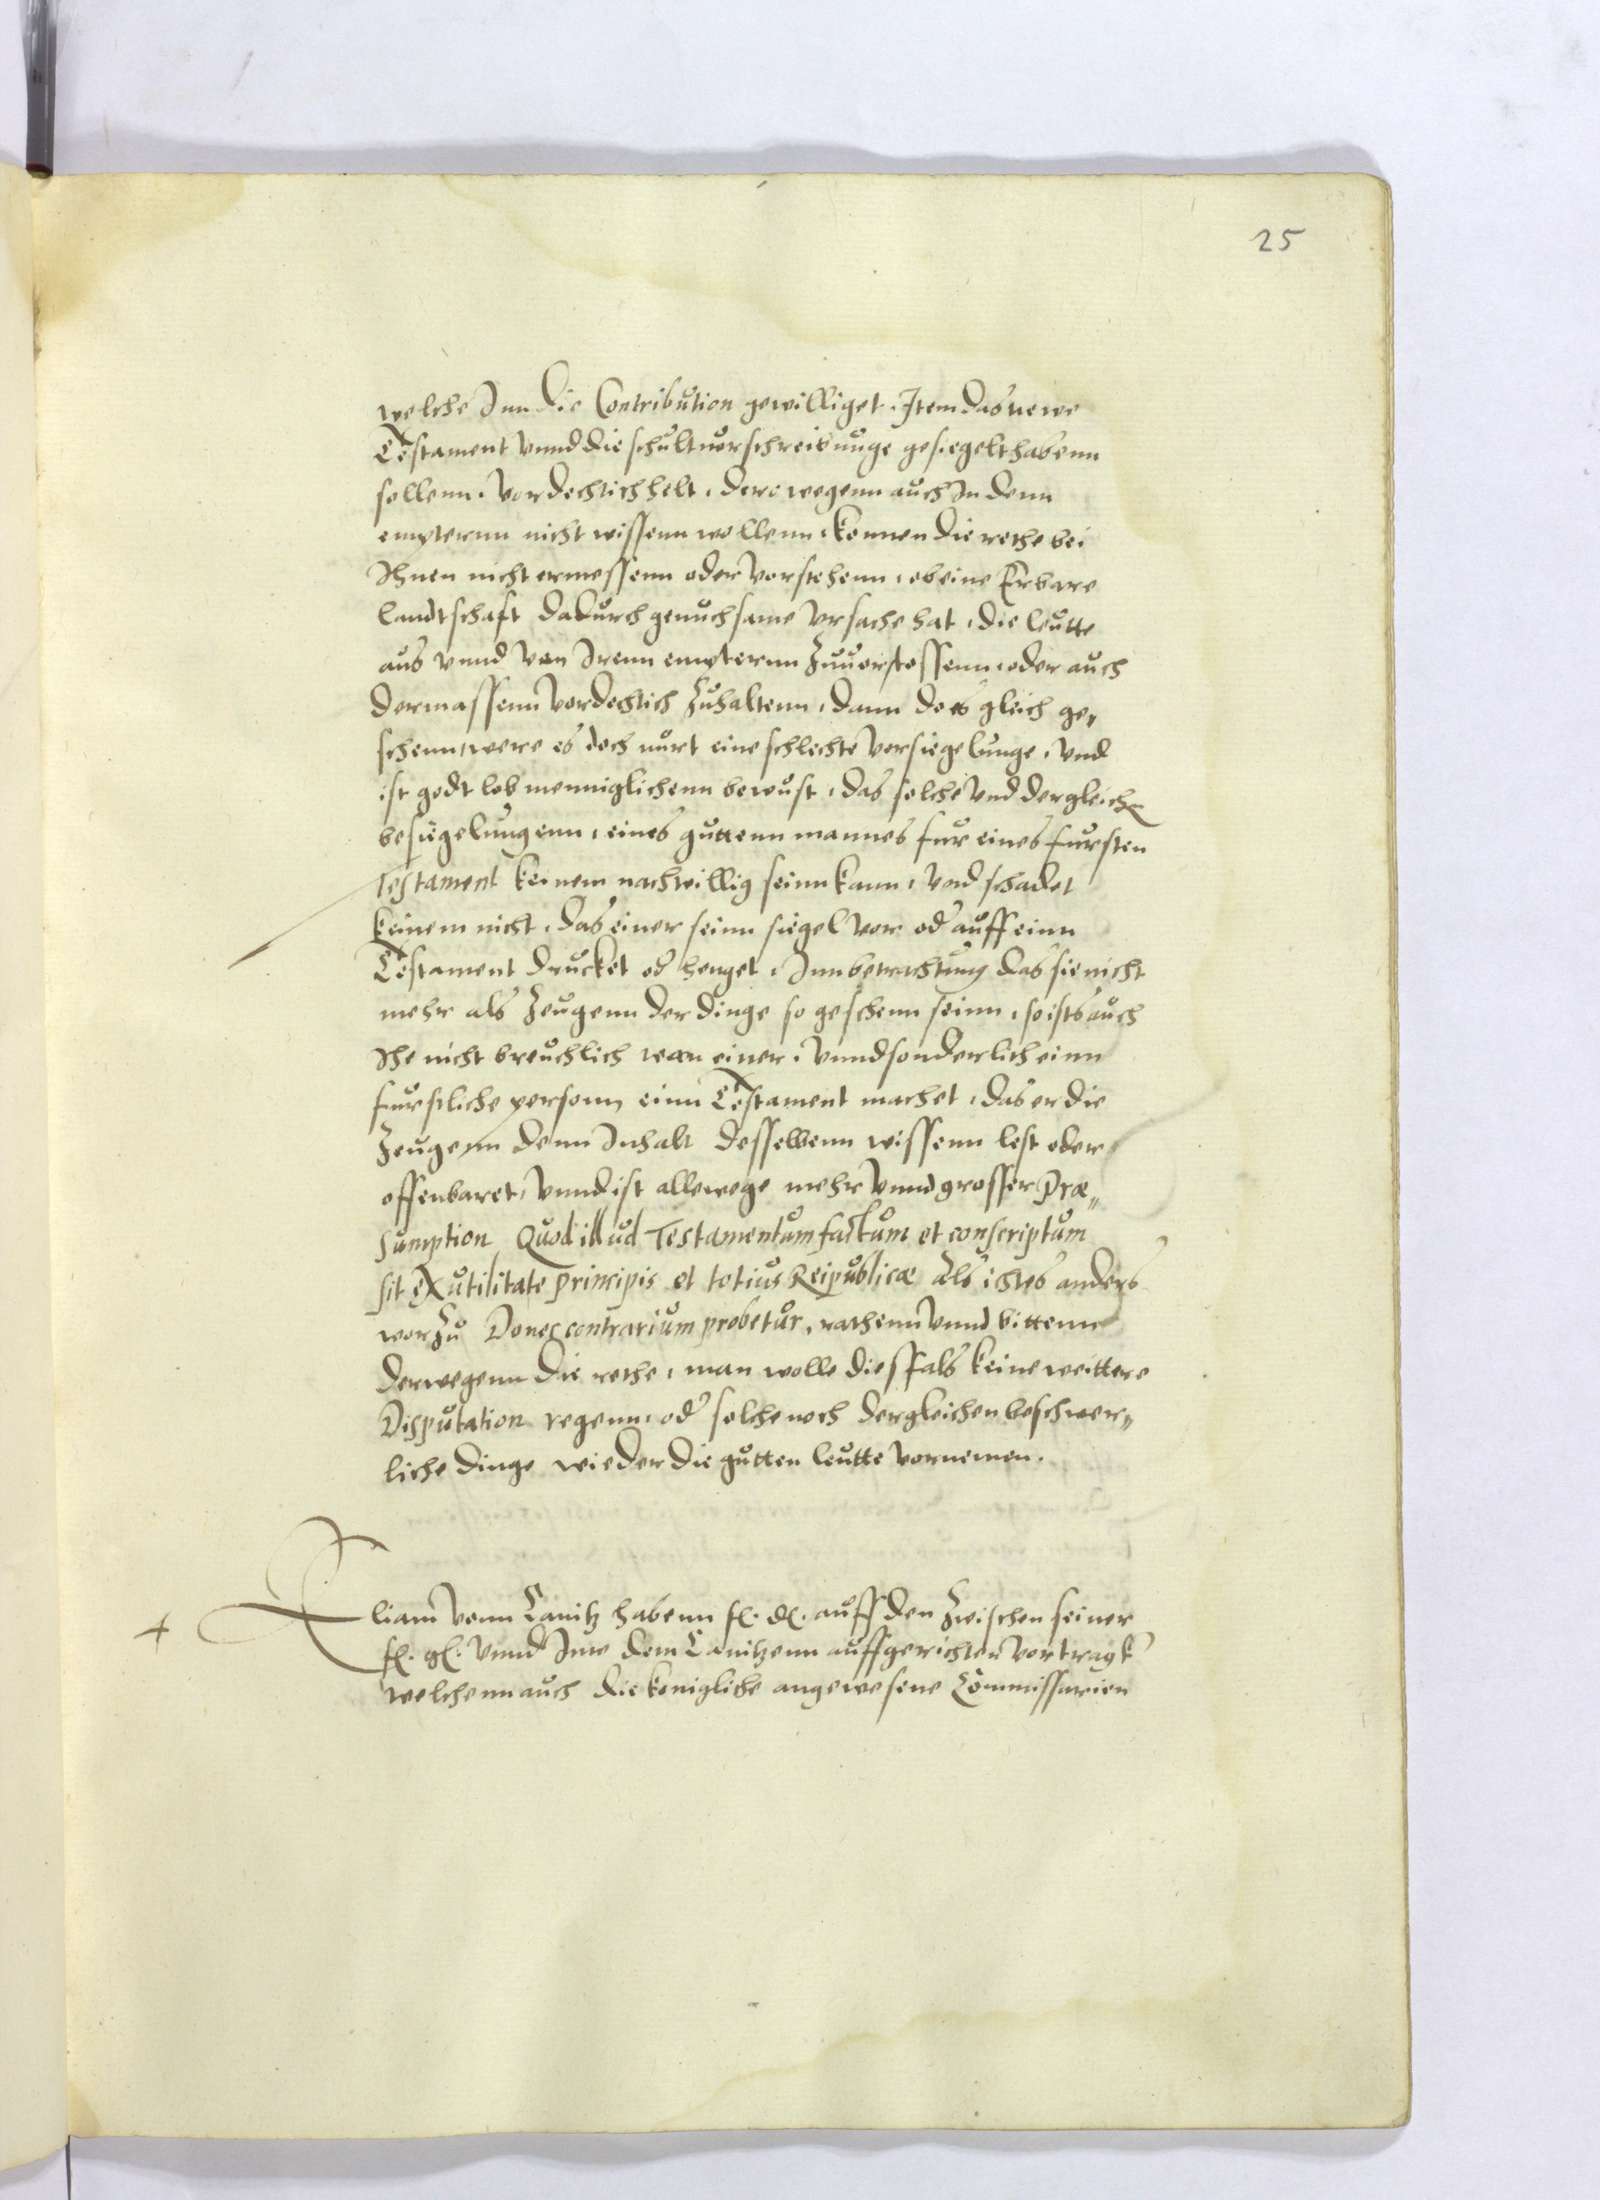 25
welche Inn die Contribution gewilliget. Item das newe
Testament vnnd die schultvorschreibunge gesiegelt habenn
sollenn, vordechtich helt, derowegenn auch In denn
empternn nicht wissenn wollenn, konnen die rethe bei
Ihnen nicht ermessenn oder vorstehenn, ob eine Erbare
landtschaft dadurch genuchsame vrsache hat, die leutte
aus vnnd von Irenn empternn zuuorstossenn, oder auch
dermassenn vordechtich zuhaltenn, dann do es gleich ge„
schenn, were es doch nurt eine schlechte vorsiegelunge, vnd
ist godt lob menniglichenn bewust, das solche vnd dergleichen
besiegelungenn, eines guttenn mannes fur eines fursten
Testament keinem nachteillig seinn kann, vnd schadet
keinem nicht, das einer seinn siegel vor od auff einn
Testament drucket od henget, Inn betrachtung das sie nicht
mehr als zeugenn der dinge so geschenn seinn, so ists auch
Ihe nicht breuchlich wan einer, vnnd sonderlich einn
furstliche personn einn Testament machet, das er die
zeugenn denn Inhalt desselbenn wissenn lest oder
offenbaret, vnnd ist allewege mehr vnnd grosser Præ„
sumption Quod illud Testamentum factum et conscriptum
sit ex utilitate principis et totius Reipublicæ als ichtes anders
worzu Donec contrarium probetur, rathenn vnnd bittenn
derwegenn die rethe, man wolle diesfals keine weittere
Disputation regenn, od solche noch dergleichen beschwer„
liche dinge wieder die gutten leutte vornemen.
+ Eliam vonn Canitz habenn f. d. auff den zwischen seiner
f. g. vnnd Ime dem Canitzenn auffgerichten vortragk
welchenn auch die konigliche angewesene Commissarien